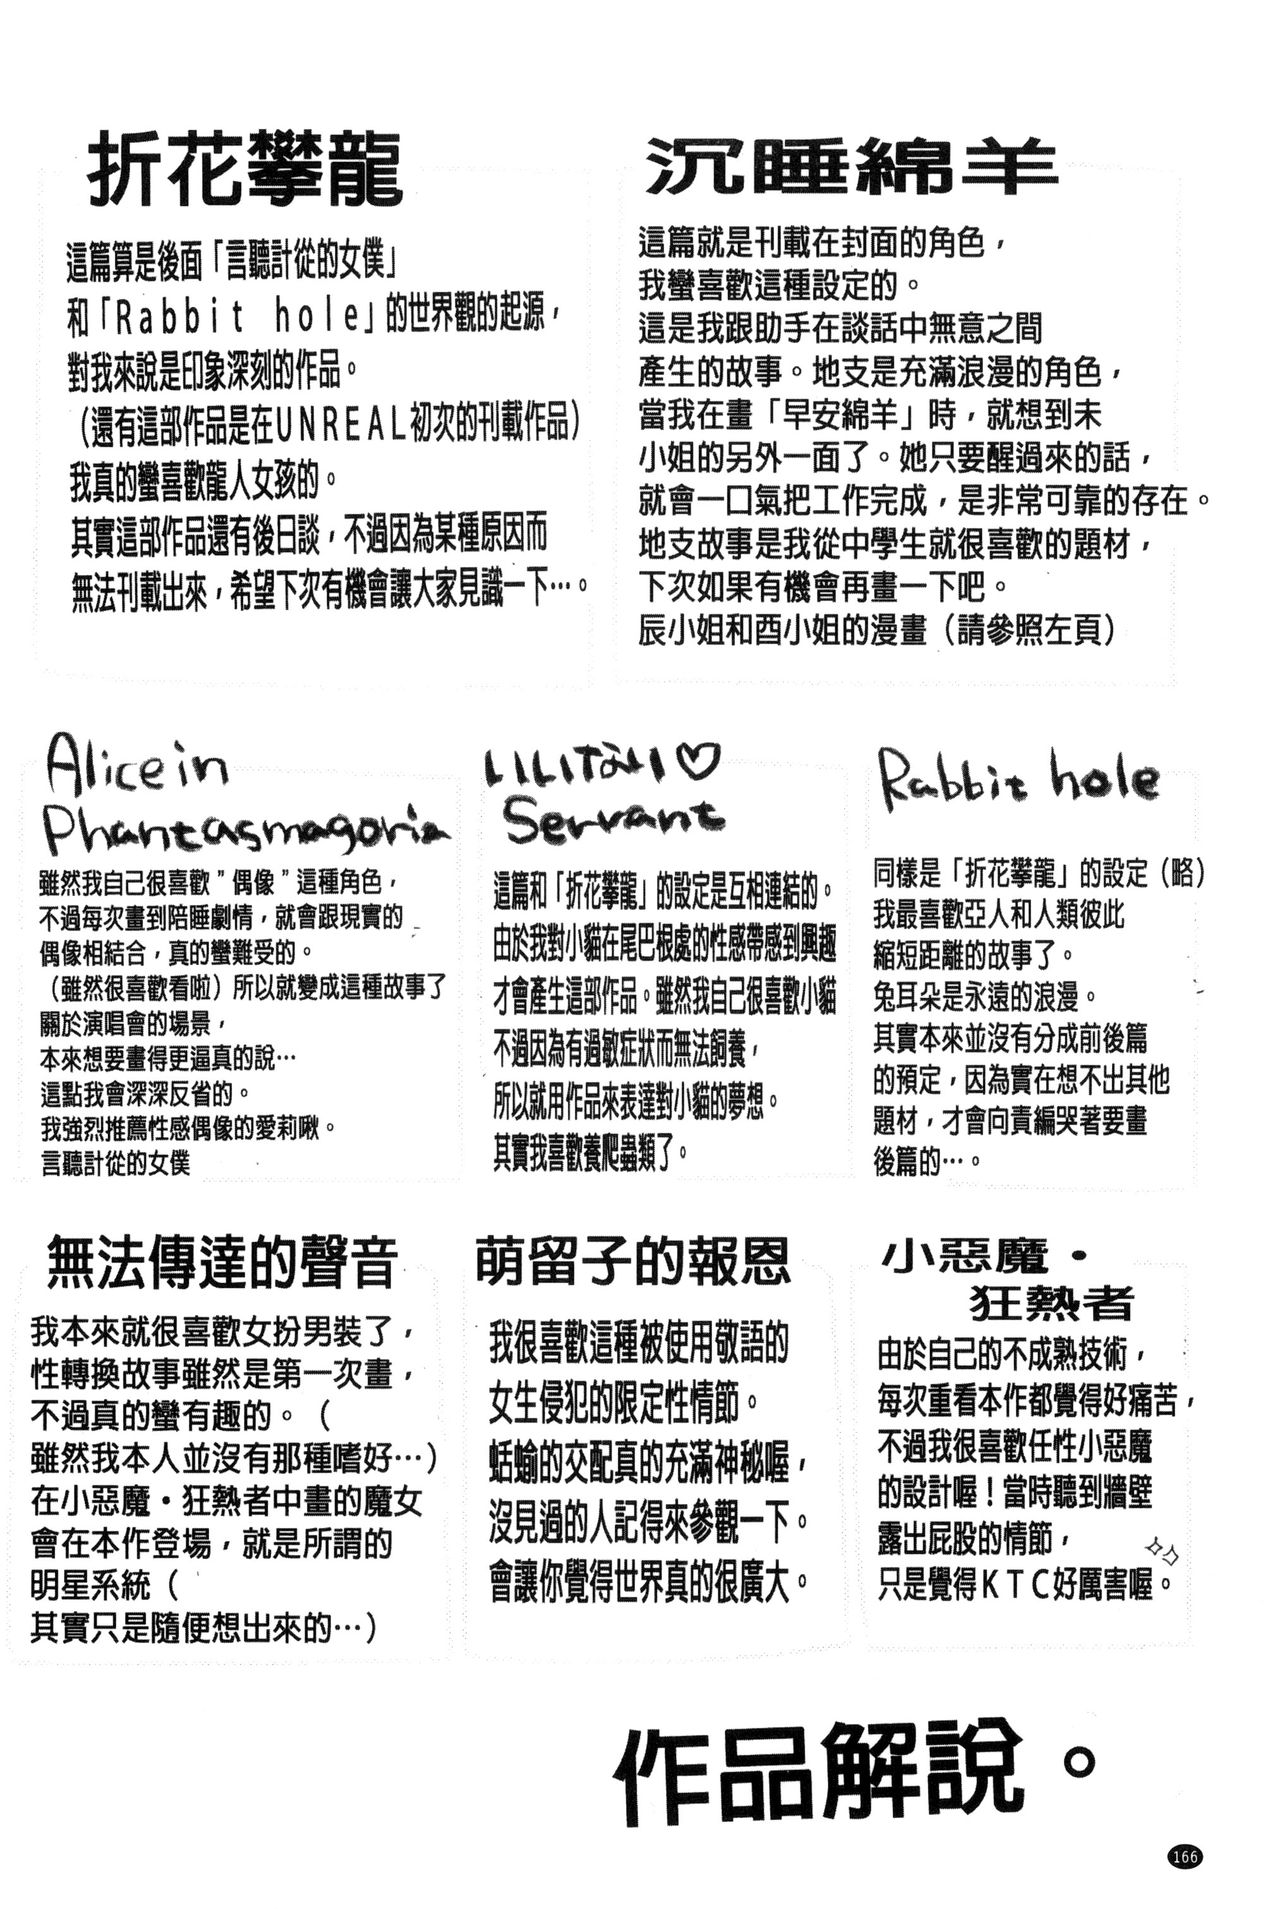 沉睡綿羊
這篇就是刊載在封面的角色，
我蠻喜歡這種設定的。
這是我跟助手在談話中無意之間
產生的故事。地支是充滿浪漫的角色，
當我在畫「早安綿羊」時，就想到未
小姐的另外一面了。她只要醒過來的話，
就會一口氣把工作完成，是非常可靠的存在。
地支故事是我從中學生就很喜歡的題材，
下次如果有機會再畫一下吧。
辰小姐和酉小姐的漫畫（請參照左頁）
折花攀龍
這篇算是後面「言聽計從的女僕」
和「Rabbit hole」的世界觀的起源，
對我來說是印象深刻的作品。
（還有這部作品是在UNREAL初次的刊載作品）
我真的蠻喜歡龍人女孩的。
其實這部作品還有後日談，不過因為某種原因而
無法刊載出來，希望下次有機會讓大家見識一下…。
Rabbit hole
同樣是「折花攀龍」的設定（略）
我最喜歡亞人和人類彼此
縮短距離的故事了。
兔耳朵是永遠的浪漫。
其實本來並沒有分成前後篇
的預定，因為實在想不出其他
題材，才會向責編哭著要畫
後篇的…。
いいなり♡
Servant
這篇和「折花攀龍」的設定是互相連結的。
由於我對小貓在尾巴根處的性感帶感到興趣
才會產生這部作品。雖然我自己很喜歡小貓
不過因為有過敏症狀而無法飼養，
所以就用作品來表達對小貓的夢想。
其實我喜歡養爬蟲類了。
Alice in
Phantasmagoria
雖然我自己很喜歡”偶像”這種角色，
不過每次畫到陪睡劇情，就會跟現實的
偶像相結合，真的蠻難受的。
（雖然很喜歡看啦）所以就變成這種故事了
關於演唱會的場景，
本來想要畫得更逼真的說…
這點我會深深反省的。
我強烈推薦性感偶像的愛莉啾。
言聽計從的女僕
小惡魔・
狂熱者
由於自己的不成熟技術，
每次重看本作都覺得好痛苦，
不過我很喜歡任性小惡魔
的設計喔！當時聽到牆壁
露出屁股的情節，
只是覺得KTC好厲害喔。
萌留子的報恩
我很喜歡這種被使用敬語的
女生侵犯的限定性情節。
蛞蝓的交配真的充滿神秘喔，
沒見過的人記得來參觀一下。
會讓你覺得世界真的很廣大。
無法傳達的聲音
我本來就很喜歡女扮男裝了，
性轉換故事雖然是第一次畫，
不過真的蠻有趣的。（
雖然我本人並沒有那種嗜好…）
在小惡魔・狂熱者中畫的魔女
會在本作登場，就是所謂的
明星系統（
其實只是隨便想出來的…）
作品解說。
166